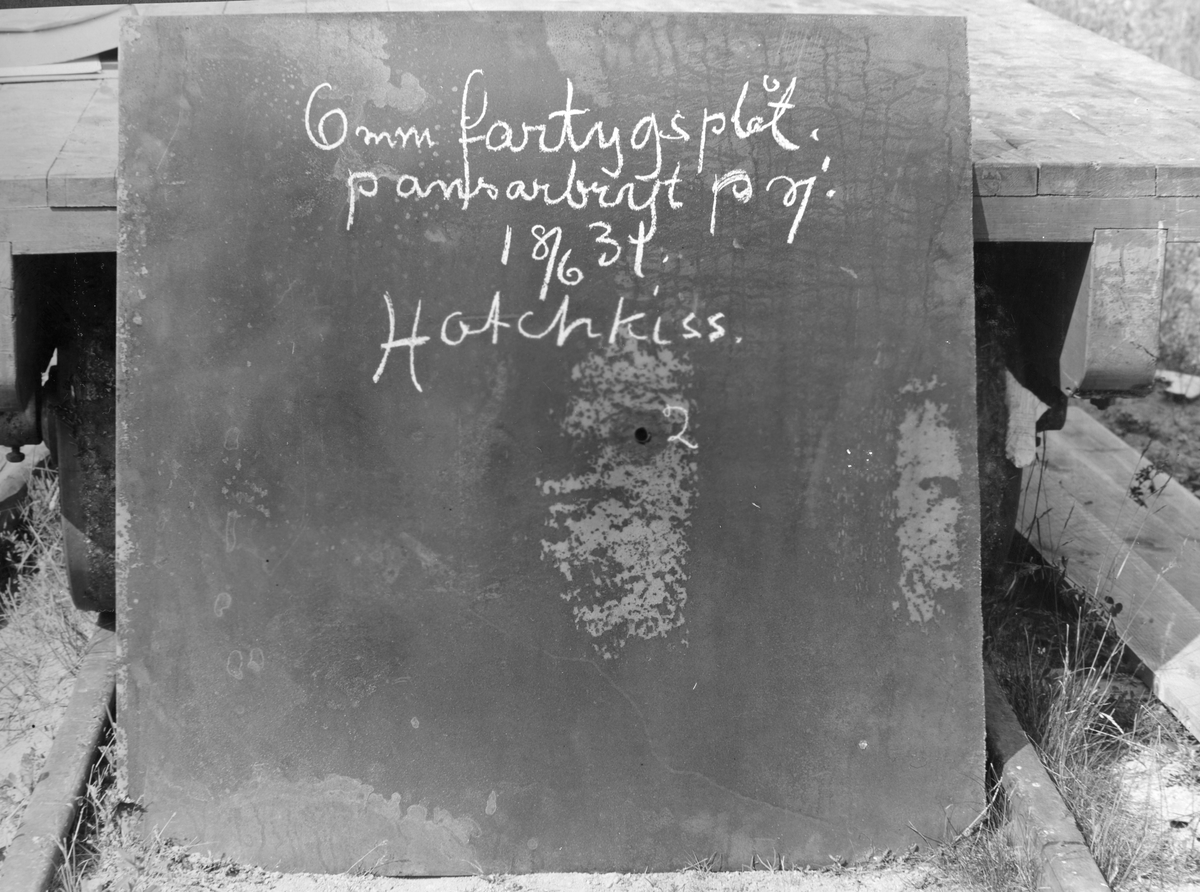 6mm fartygsplåt.
pansarbryt prj.
18/6 31.
Hotchkiss.
2